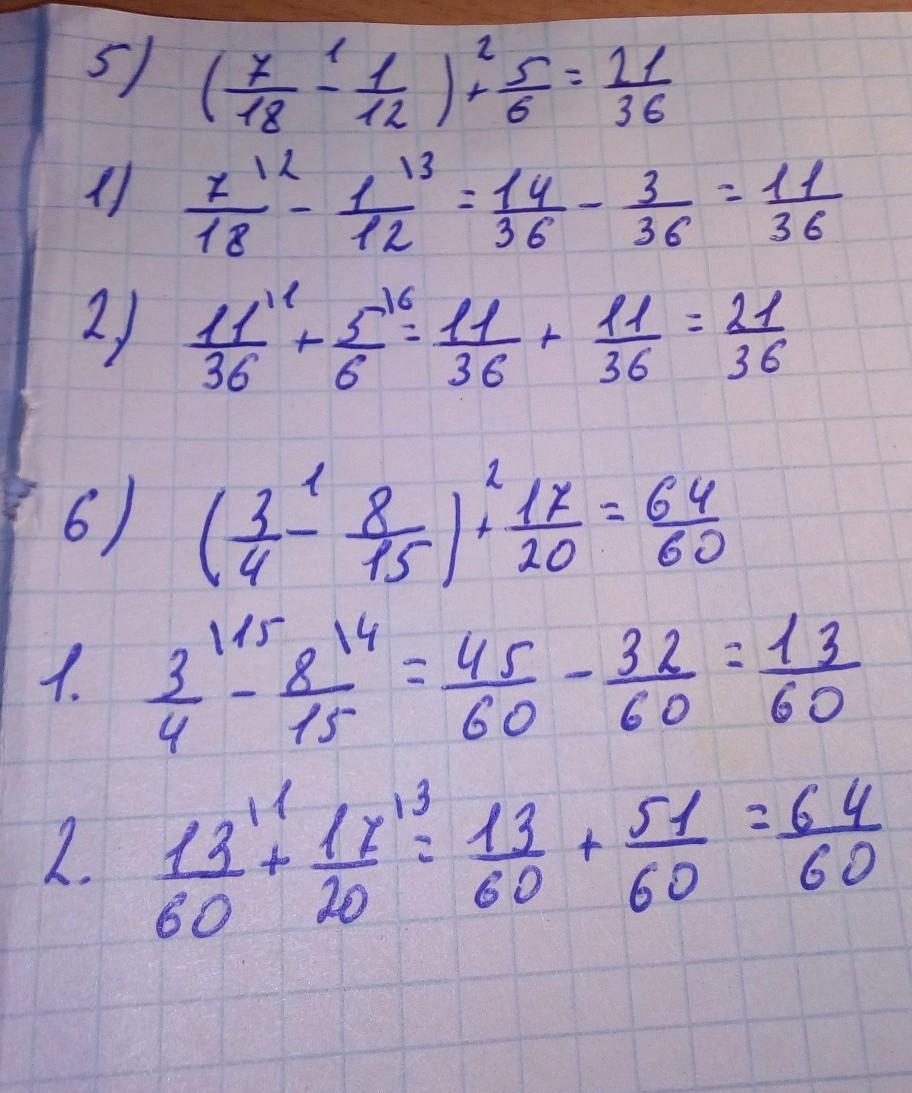 5) (7/18 -¹ 1/12) +² 5/6 = 21/36
1) 7/18\2 - 1/12\3 = 14/36 - 3/36 = 11/36
2) 11/36\1 + 5/6\6 = 11/36 + 11/36 = 21/36
6) (3/4 -¹ 8/15) +² 17/20 = 64/60
1. 3/4\15 - 8/15\4 = 45/60 - 32/60 = 13/60
2. 13/60\1 + 17/20\3 = 13/60 + 51/60 = 64/60